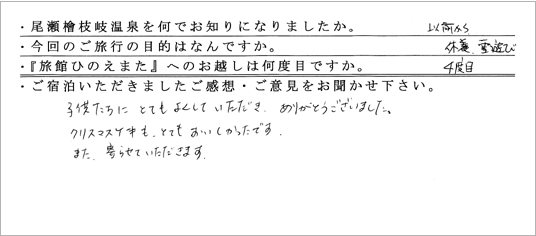 ・尾瀬檜枝岐温泉を何でお知りになりましたか。 以前から
・今回のご旅行の目的はなんですか。 休養、雪遊び
・『旅館ひのえまた』へのお越しは何度目ですか。 4度目
・ご宿泊いただきましたご感想・ご意見をお聞かせ下さい。
子供たちに とてもよくしていただき、ありがとうございました。
クリスマスケーキも、とてもおいしかったです。
また、寄らせていただきます。